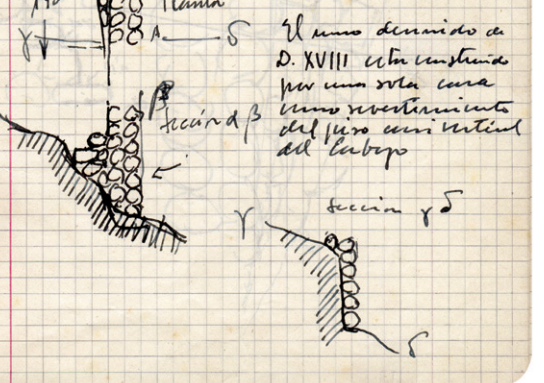 Planta
γ A δ
El muro derruido de
D. XVIII esta construido
por una sola cara
como revestimiento
del piso casi vertical
del
β
Sección α β
Sección γ δ
γ
δ